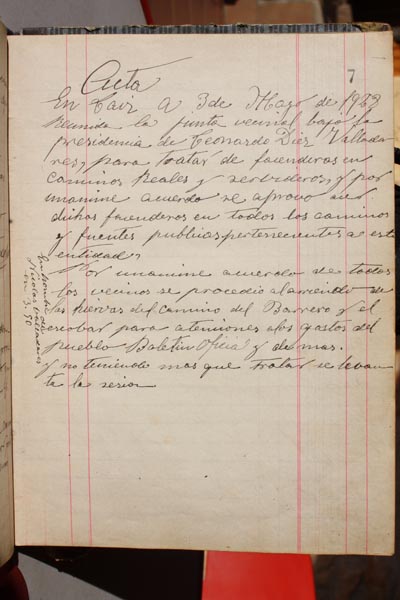 7
Acta
En Cair a 3 de Mayo de 1928
Reunida la junta vecinal bajo la
presidencia de Leonardo Diez Vallada-
res, para tratar de facenderas en
caminos Reales y servideros, y por
unamine acuerdo se aprovo
dichas facenderas en todos los caminos
y fuentes publicas pertenecientes a esta
entidad,
Por unamine acuerdo de todos
los vecinos se procedio al arriendo de
las hiervas del camino del Barrero y el
escobar para atenciones a los gastos del
pueblo Boletin Oficial y demas.
Y no teniendo mas que tratar se levan
ta la sesion
Nicolas Valladares